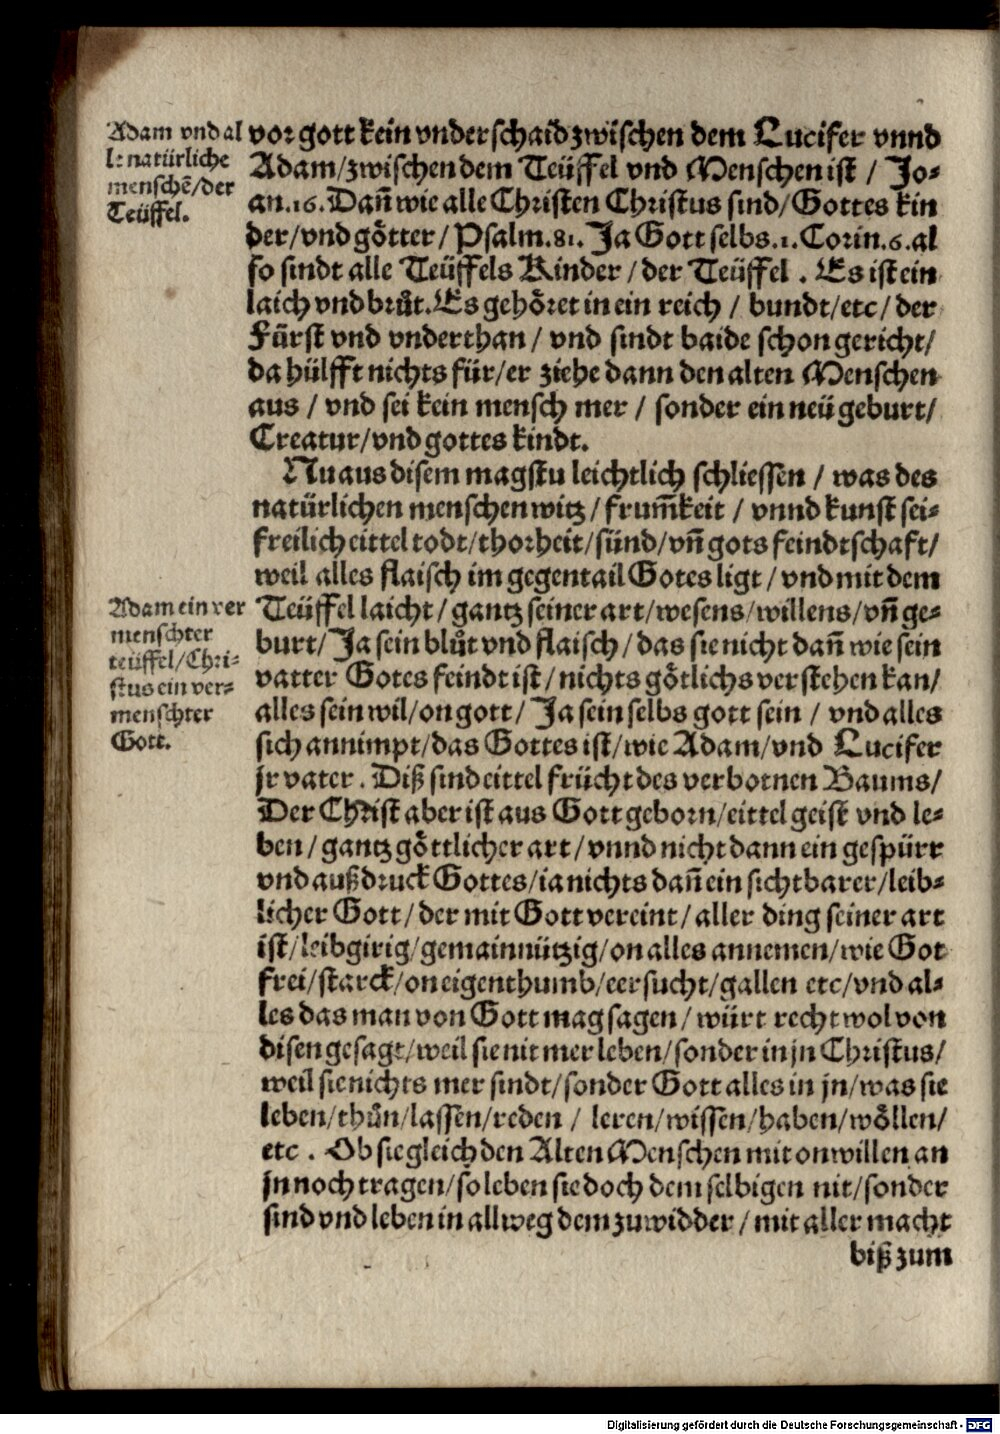 Adam vnd al
le natürliche
menschē/der
Teüffel.
vor gott kein vnderschaid zwischen dem Lucifer vnnd
Adam/zwischen dem Teüffel vnd Menschen ist / Jo-
an.16. Dañ wie alle Christen Christus sind/Gottes kin
der/vnd götter/Psalm.81. Ja Gott selbs.1.Corin.6.al
so sindt alle Teüffels Kinder/der Teüffel . Es ist ein
laich vnd brůt. Es gehöret in ein reich / bundt/etc/ der
Fürst vnd vnderthan / vnd sindt baide schon gericht/
da hülfft nichts für/er ziehe dann den alten Menschen
aus / vnd sei kein mensch mer / sonder ein neü geburt/
Creatur/vnd gottes kindt.
Nu aus disem magstu leichtlich schliessen / was des
natürlichen menschen witz/frum̃keit / vnnd kunst sei-
freilich eittel todt/thorheit/sünd/vñ gots feindtschaft/
weil alles flaisch im gegentail Gotes ligt/vnd mit dem
Adam ein ver
menschter
teüffel/Chri-
stus ein ver-
menschter
Gott.
Teüffel laicht/gantz seiner art/wesens/willens/vñ ge-
burt/Ja sein blůt vnd flaisch/das sie nicht dañ wie sein
vatter Gotes feindt ist/nichts götlichs verstehen kan/
alles sein wil/on gott/Ja sein selbs gott sein / vnd alles
sich annimpt/das Gottes ist/wie Adam/vnd Lucifer
jr vater . Diß sind eittel frücht des verbotnen Baums/
Der Christ aber ist aus Gott geborn/eittel geist vnd le-
ben/gantz göttlicher art/vnnd nicht dann ein gespürr
vnd außdruck Gottes/ia nichts dañ ein sichtbarer/leib-
licher Gott/der mit Gott vereint/aller ding seiner art
ist/leibgirig/gemainnützig/on alles annemen/wie Got
frei/starck/on eigenthumb/eersucht/gallen etc/vnd al-
les das man von Gott mag sagen/würt recht wol von
disen gesagt/weil sie nit mer leben/sonder in jn Christus/
weil sie nichts mer sindt/sonder Gott alles in jn/was sie
leben/thůn/lassen/reden / leren/wissen/haben/wöllen/
etc . Ob sie gleich den Alten Menschen mit onwillen an
jn noch tragen/so leben sie doch dem selbigen nit/sonder
sind vnd leben in allweg dem zuwidder/mit aller macht
biß zum
Digitalisierung gefördert durch die Deutsche Forschungsgemeinschaft - DFG